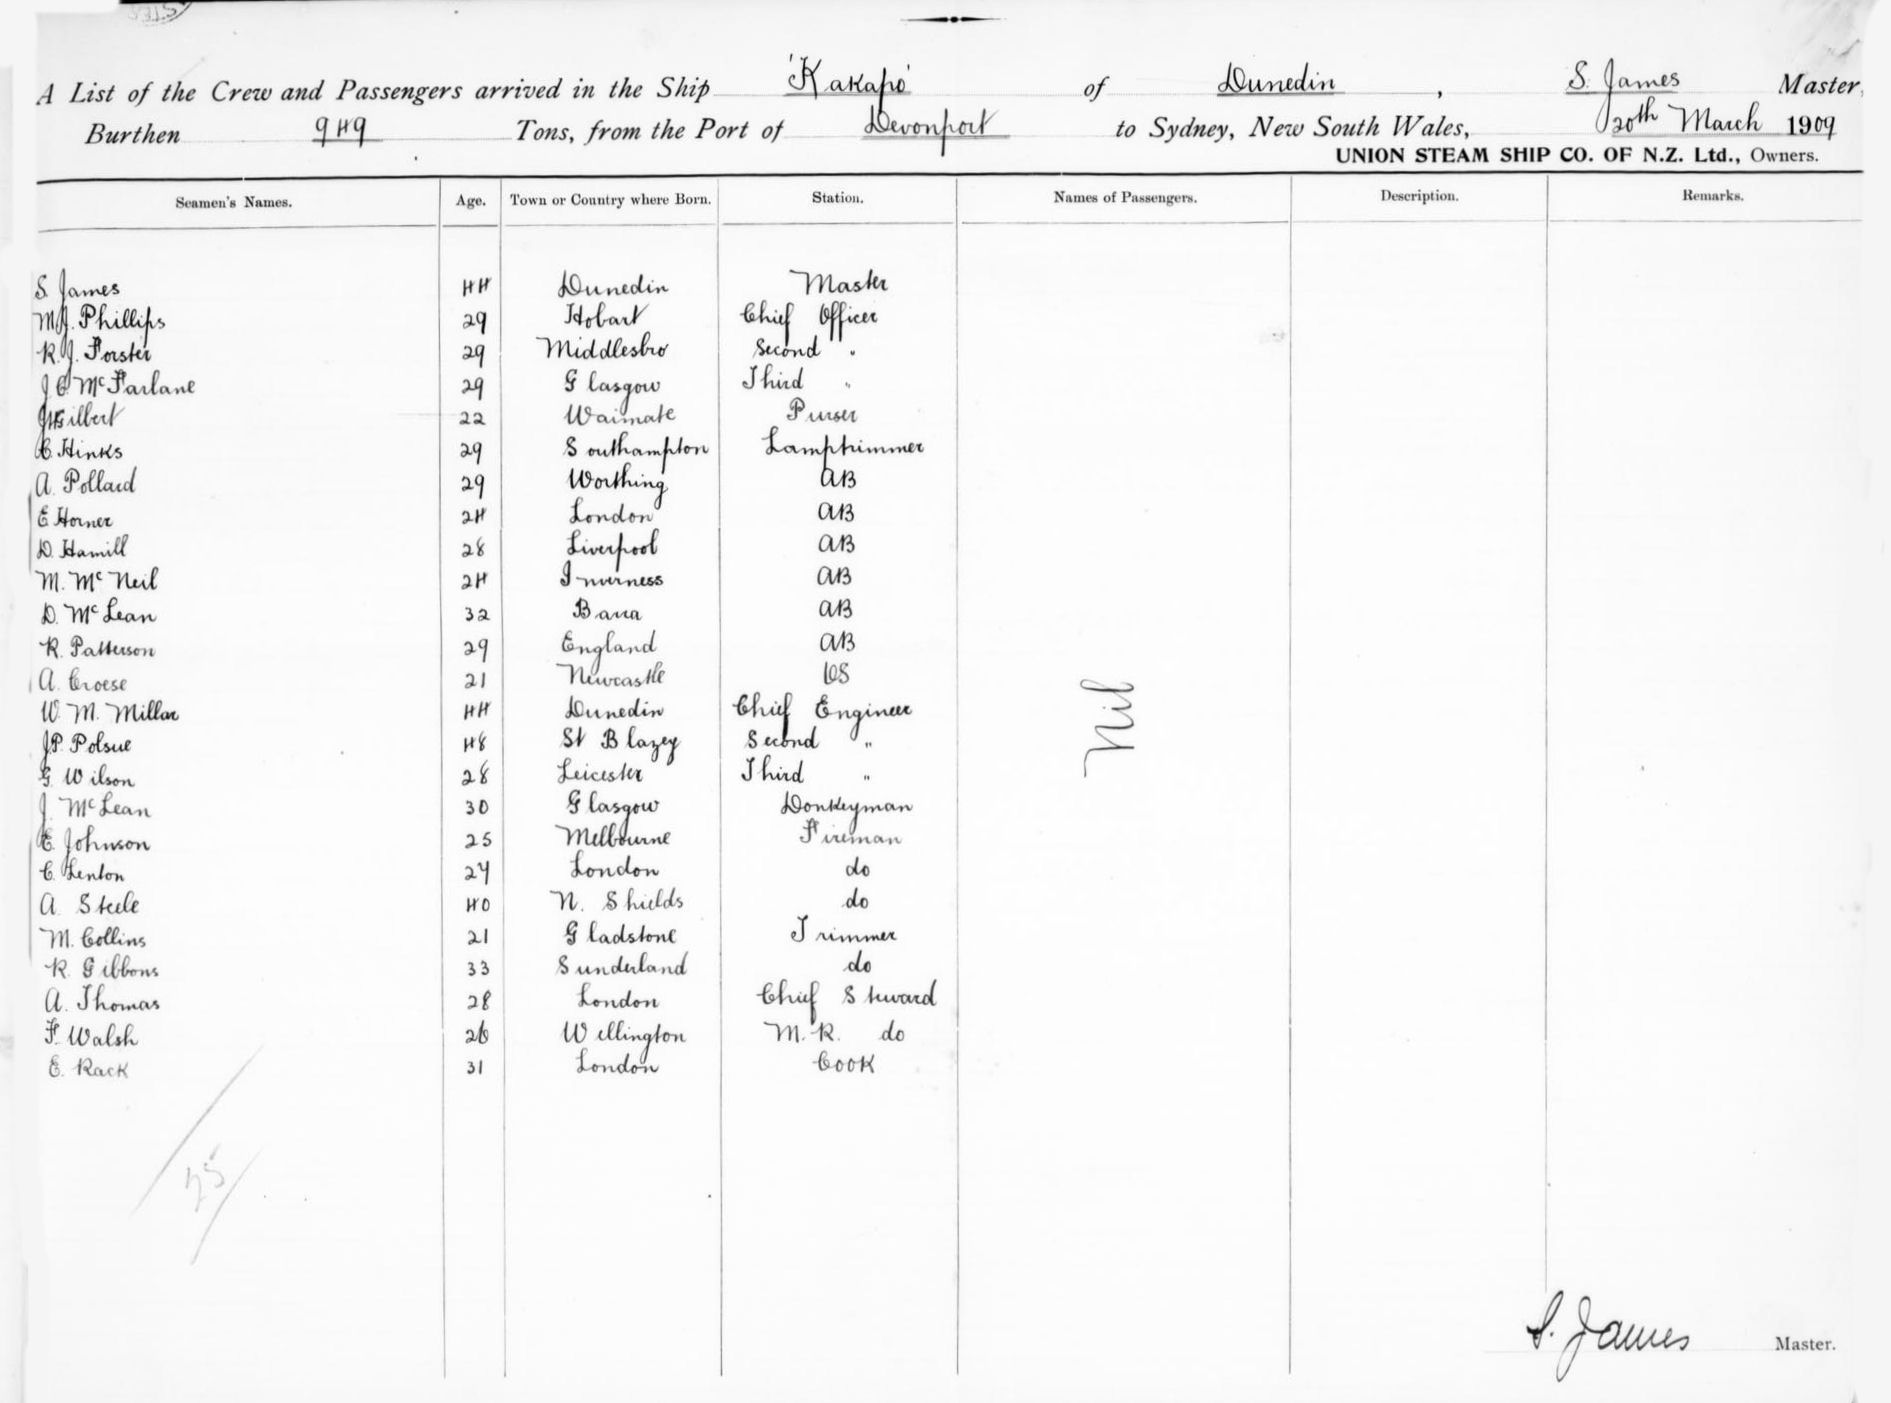 A List of the Crew and Passengers arrived in the Ship 'Kakapo' of Dunedin, S. James Master,
Burthen 949 Tons, from the Port of Devonport to Sydney, New South Wales, 20th March 1909
UNION STEAM SHIP CO. OF N.Z. Ltd., Owners.
Seamen's Names. Age. Town or Country where Born. Station. Names of Passengers. Description. Remarks.
S. James 44 Dunedin Master
M.J. Phillips 29 Hobart Chief Officer
R.J. Forster 29 Middlesbro Second "
J.C. McFarlane 29 Glasgow Third "
Gilbert 22 Waimate Purser
C. Hinks 29 Southampton Lamptrimmer
A. Pollard 29 Worthing AB
E Horner 24 London AB
D. Hamill 28 Liverpool AB
M. McNeil 24 Inverness AB
D. McLean 32 Barra AB
R. Patterson 29 England AB
A. Croese 21 Newcastle OS
W. M. Millar 44 Dunedin Chief Engineer
J.P. Polsue 48 St Blazey Second "
G Wilson 28 Leicester Third "
J. McLean 30 Glasgow Donkeyman
E. Johnson 25 Melbourne Fireman
C. Lenton 24 London do
A. Steele 40 N. Shields do
M. Collins 21 Gladstone Trimmer
R. Gibbons 33 Sunderland do
A. Thomas 28 London Chief Steward
F. Walsh 26 Wellington M.R. do
E. Rack 31 London Cook
Nil
25
S. James Master.